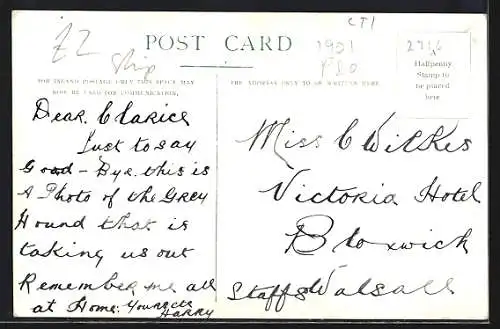 £2
Ship
CT1
1901
P&O
POST CARD
FOR INLAND POSTAGE ONLY THIS SPACE MAY
NOW BE USED FOR COMMUNICATION.
THE ADDRESS ONLY TO BE WRITTEN HERE
Halfpenny
Stamp to
be placed
here
Dear Clarice
Just to say
Good-Bye. this is
A Photo of the Grey
Hound that is
taking us out
Remember me all
at Home. Yours etc
HARRY
Miss C Wilkes
Victoria Hotel
Bloxwich
Staffs Walsall